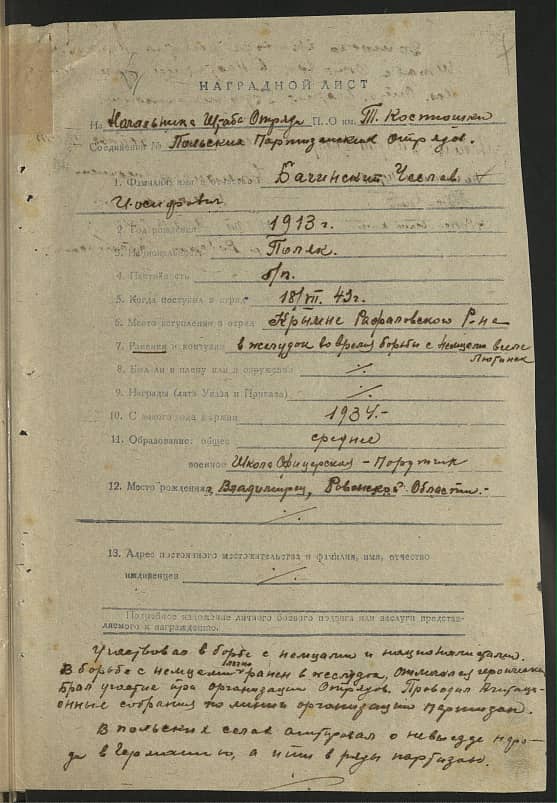 НАГРАДНОЙ ЛИСТ
На Начальника Штаба Отряда П.О им. Т. Костюшки
Соединения № Польских Партизанских отрядов.
1. Фамилия имя Бачинский Чеслав
Иосифович
2. Год рождения 1913 г.
3. Национальность Поляк.
4. Партийность б/п.
5. Когда поступил в отряд 18/VII. 43 г.
6. Место вступления в отряд Крымне Рафаловского Р-на
7. Ранения и контузия в желудок во время борьбы с немцами в селе
Лютинск
8. Был-ли в плену или в окружении ·/·
9. Награды (дата Указа и Приказа) ·/·
10. С какого года в армии 1934.-
11. Образование: общее среднее
военное Школа Офицерская - Поручик
12. Место рождения г. Владимирец, Ровенской Области.-
·/·
13. Адрес постоянного местожительства и фамилия, имя, отчество
иждивенцев ·/·
Подробное изложение личного боевого подвига или заслуги представ-
ляемого к награждению.
Участвовал в борьбе с немцами и националистами.
В борьбе с немцами ранен в желудок, отличался героически
брал участие при организации Отрядов. Проводил Агитаци-
онные собрания по линии организации партизан.
В польских селах агитировал о невыезде наро-
да в Германию, а итти в ряды партизан.